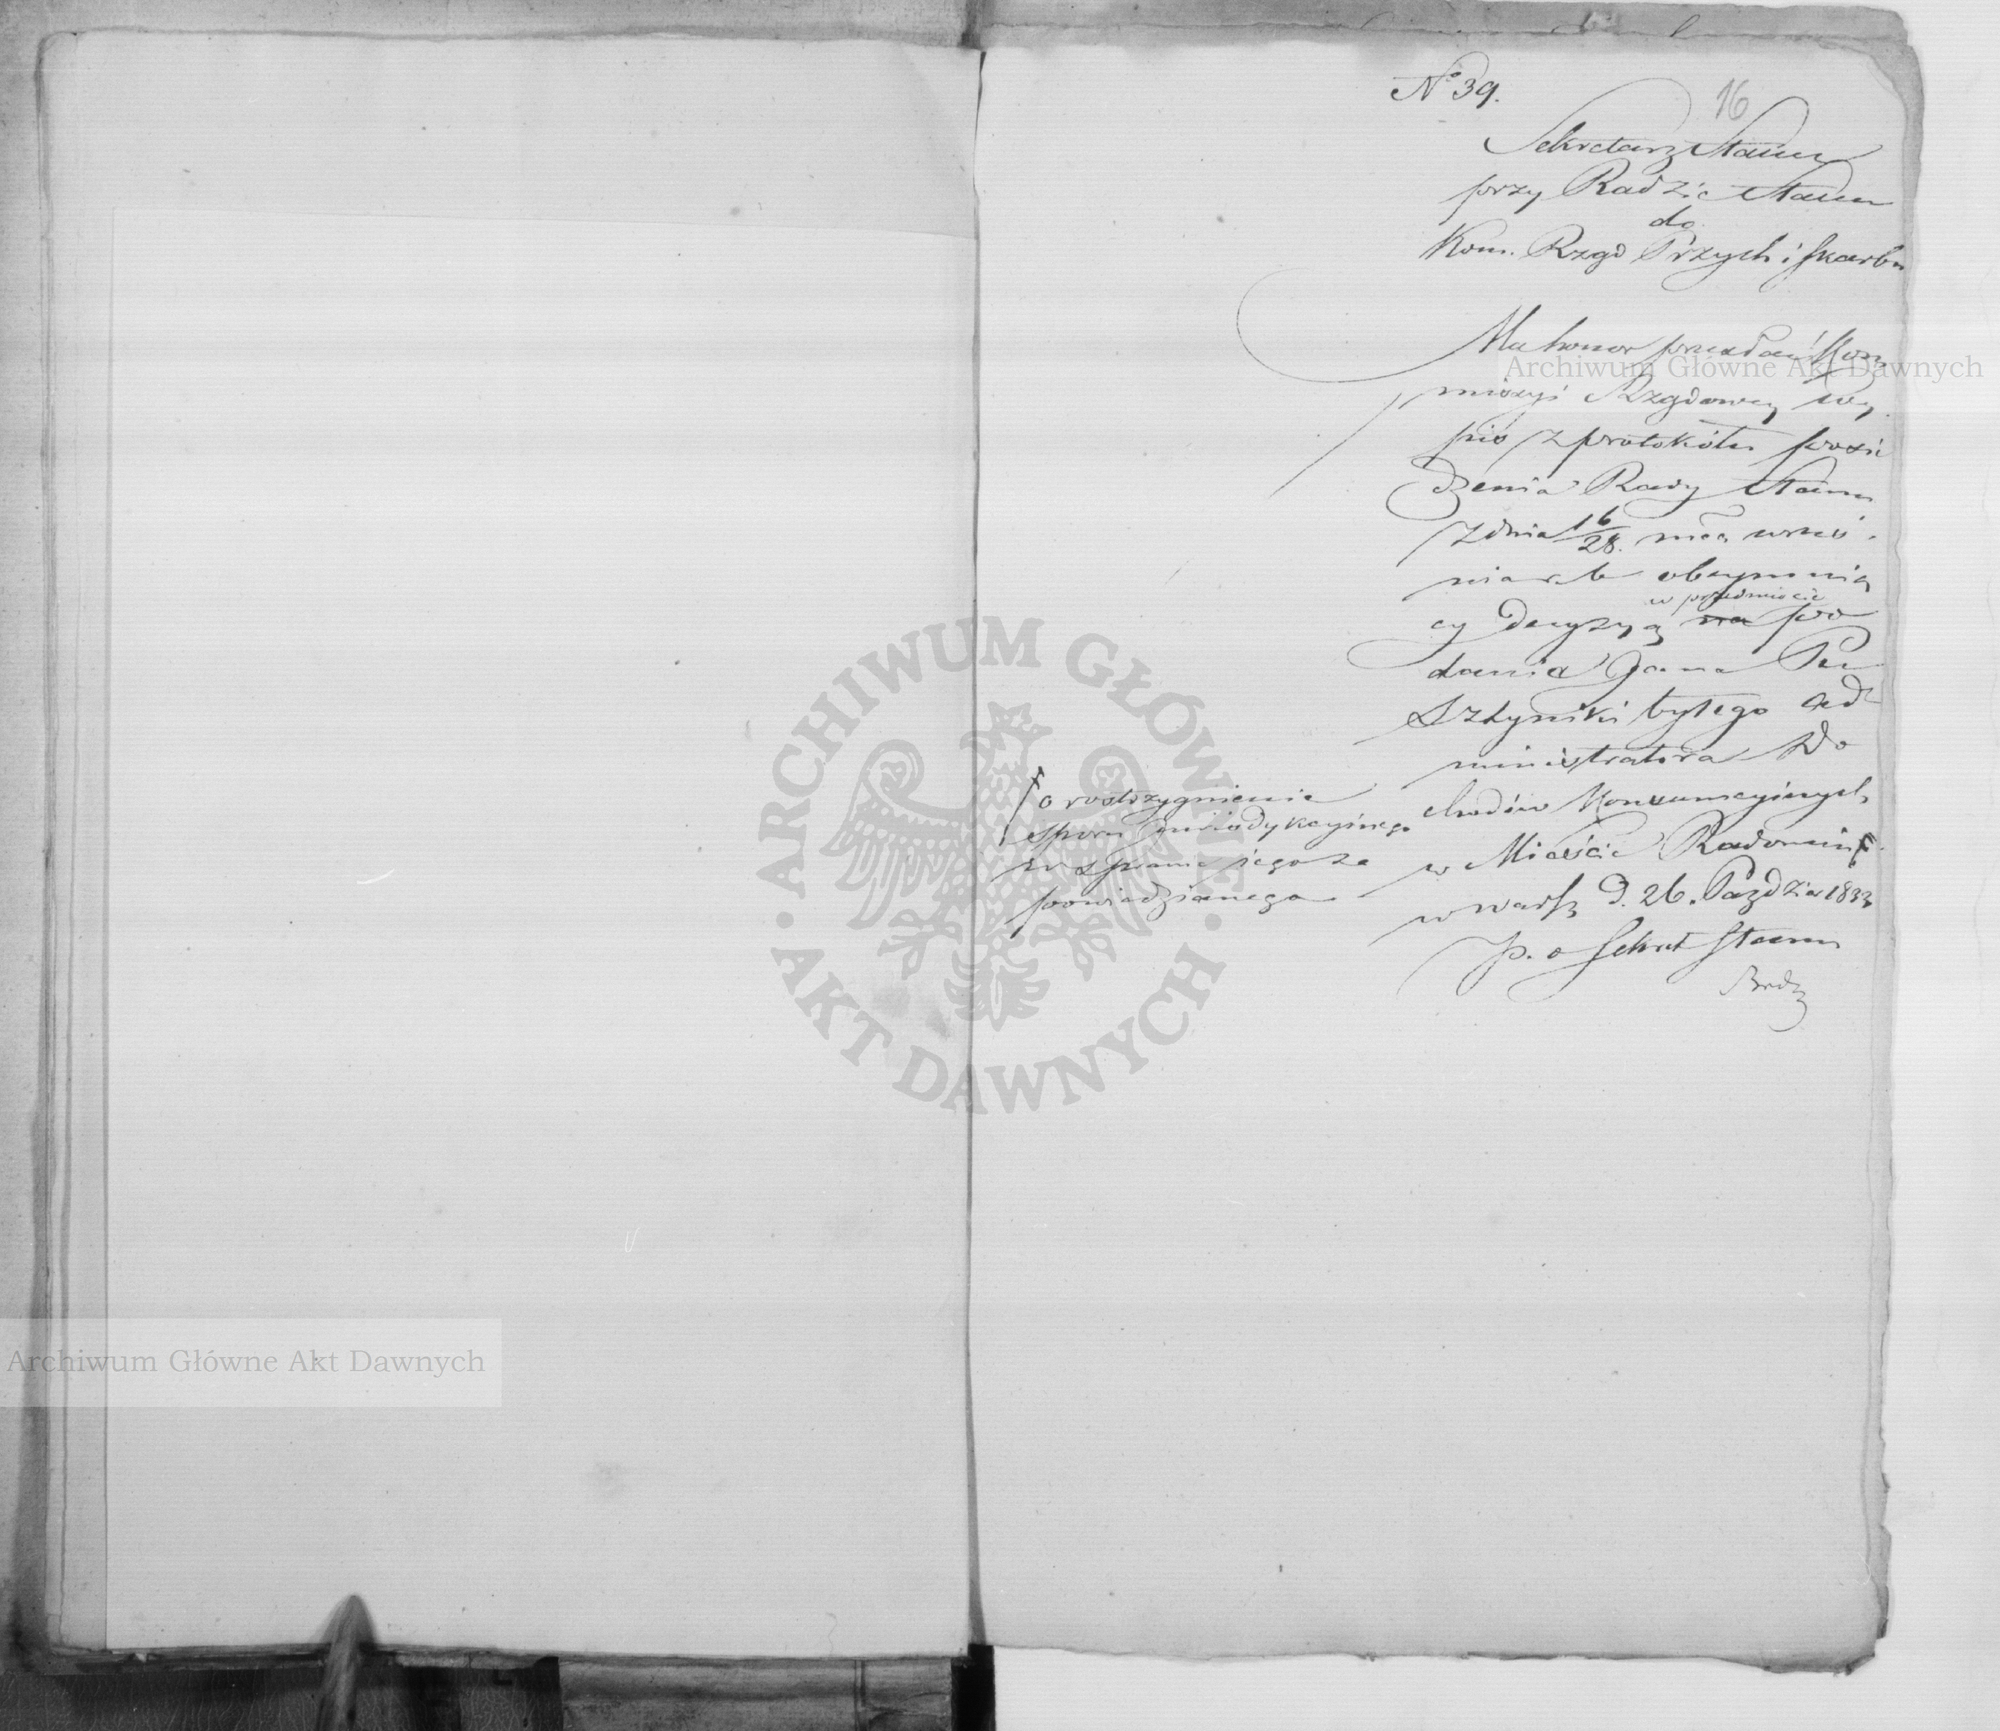 No 39.
16
Sekretarz Stanu
przy Radzie Stanu
do
Kom. Rząd Przych i Skarbu
Ma honor przesłać Kom
missyi Rządowey wy
pis z protokółu posie
dzenia Rady Stanu
z dnia 16/28. mca wrześ
nia r. b. obeymuią
cy decyzyą na po
w przedmiocie
dania Jana Pu
szkyniki byłego ad
ministratora Do
chodów Konsumcyinych
w Mieście Radomiu
w Warsz d. 26. Paździer 1833
p. o Sekret Stanu
o rostrzygnienie
sporu jurizdykcyinego
w sprawie jego za
powiedzianego
Archiwum Główne Akt Dawnych
ARCHIWUM GŁÓWNE
AKT DAWNYCH
Archiwum Główne Akt Dawnych